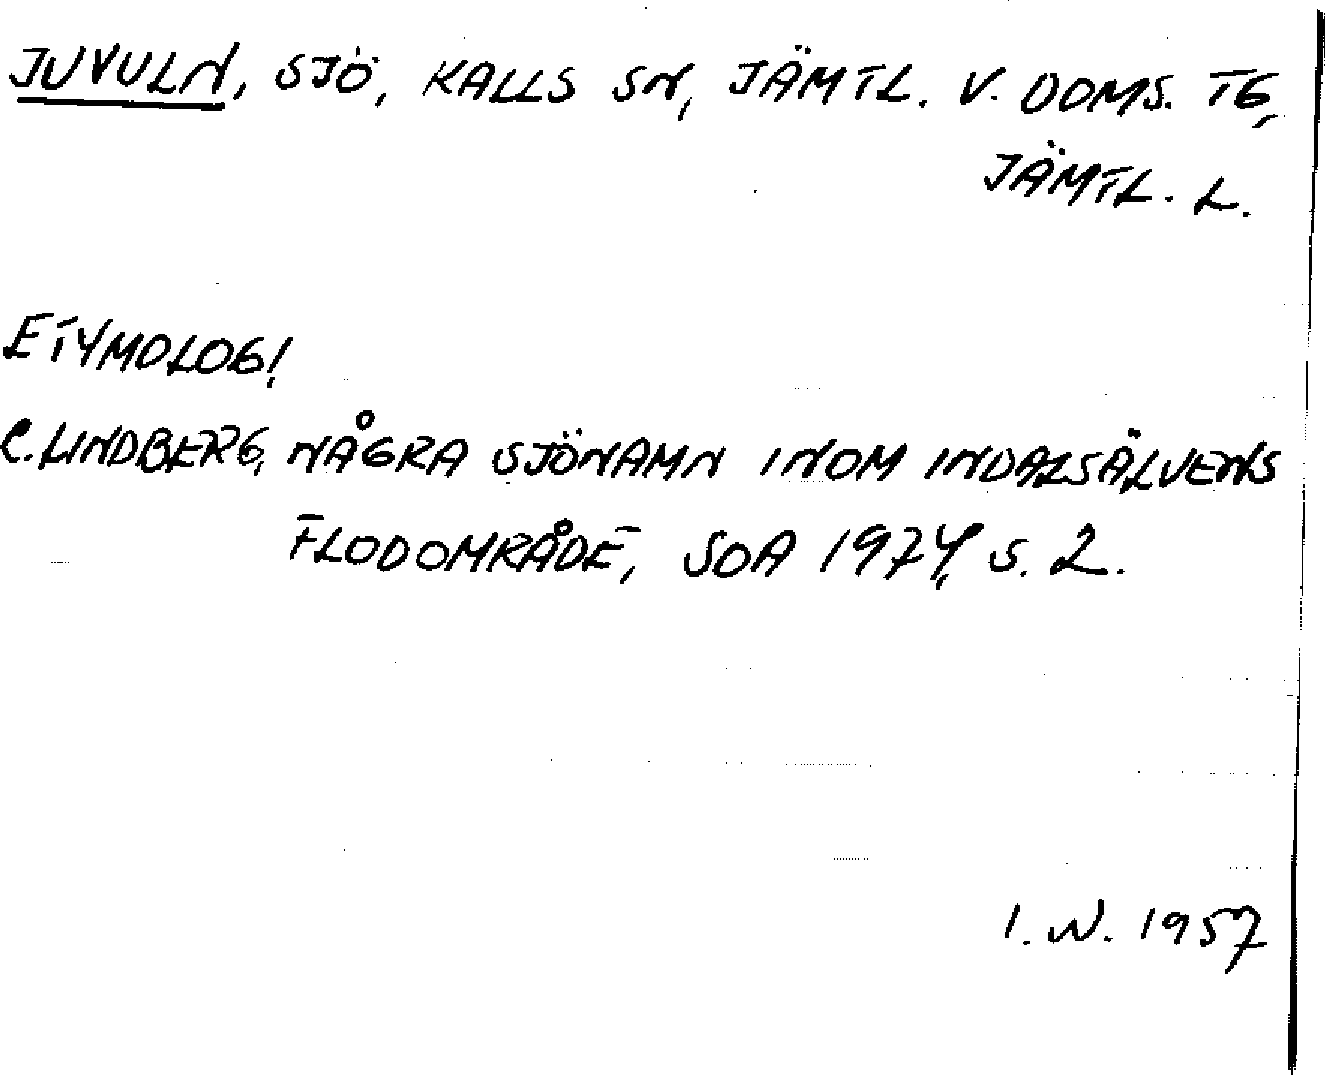 JUVULN, SJÖ, KALLS SN, JÄMTL. V. DOMS. TG,
JÄMTL. L.
ETYMOLOGI
C. LINDBERG, NÅGRA SJÖNAMN INOM INDALSÄLVENS
FLODOMRÅDE, SOA 1974, S. 2.
I. N. 1957